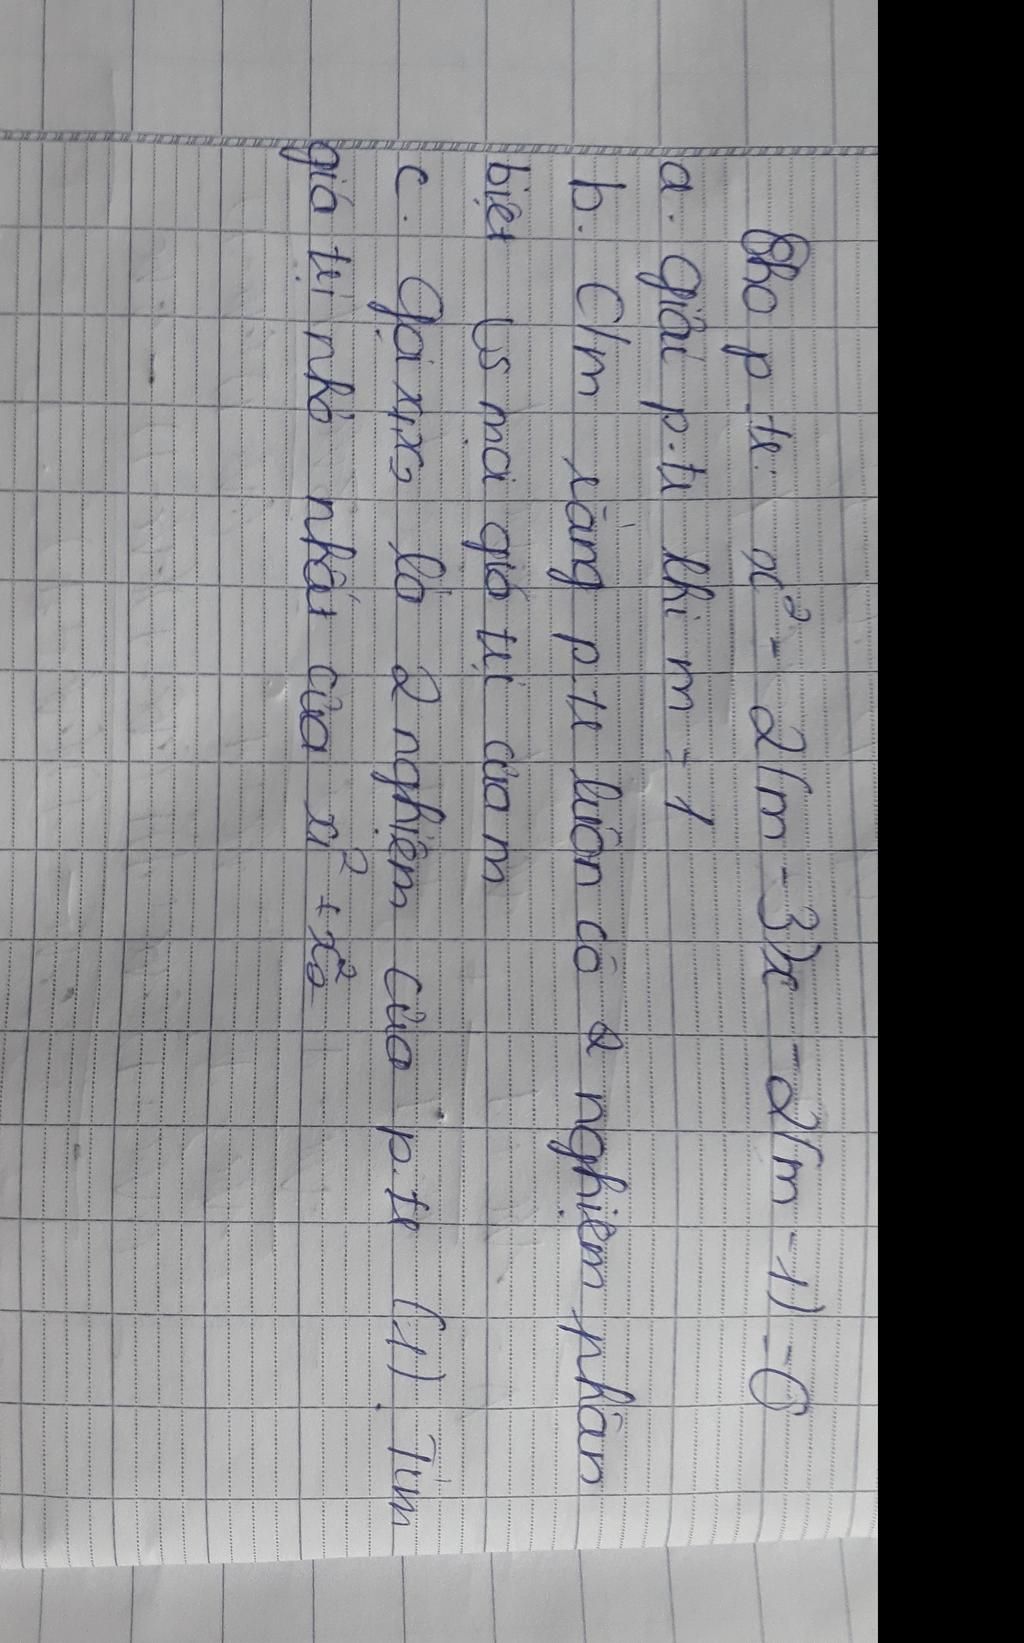 Cho p.tr: x² - 2(m-3)x - 2(m-1) = 0
a. Giải p.tr khi m = 1
b. C/m rằng p.tr luôn có 2 nghiệm phân
biệt với mọi giá trị của m
c. Gọi x₁x₂ là 2 nghiệm của p.tr (1). Tìm
giá trị nhỏ nhất của x₁² + x₂²